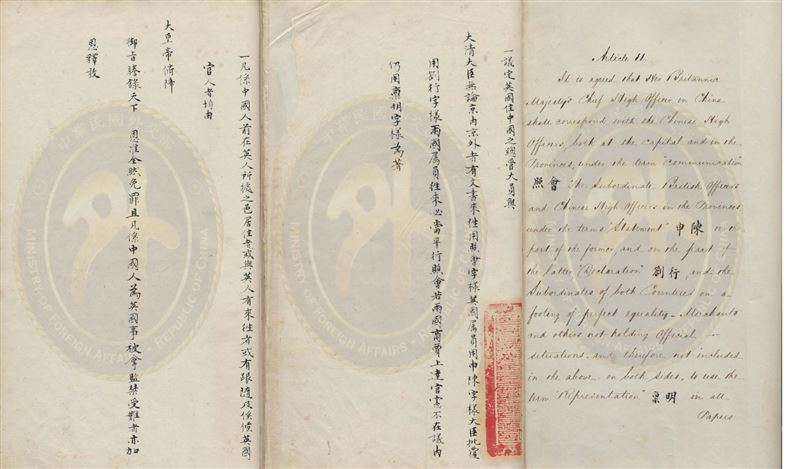 Article 11.
It is agreed, that Her Britannic
Majesty's Chief High Officer in China
shall correspond with the Chinese High
Officers, both at the capital and in the
Provinces, under the term "communication"
照會 The Subordinate British Officers
and Chinese High Officers in the Provinces
under the terms "Statement" 申陳 on the
part of the former, and on the part of
the latter "Declaration" 劄行, and the
Subordinates of both Countries on a
footing of perfect equality. Merchants
and others not holding Official
situations, and therefore not included
in the above, on both sides, to use the
term "Representation" 稟明 in all
Papers
一議定英國住中國之總管大員與
大清大臣無論京內京外者有文書來往用照會字樣英國屬員用申陳字樣大臣批覆
用劄行字樣兩國屬員往來必當平行照會若兩國商賈上達官憲不在議內
仍用稟明字樣為著
一凡係中國人前在英人所據之邑居住者或與英人有來往者或有跟隨及俟候英國
官人者均由
大皇帝俯降
御旨謄錄天下 恩准全然免罪且凡係中國人為英國事被拿監禁受難者亦加
恩釋放